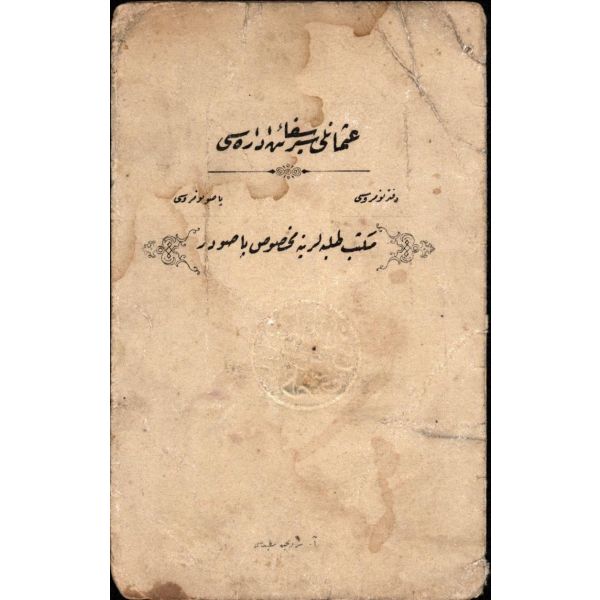 عثمانلی سیر سفائن اداره‌سی
دفتر نومروسی   پاصو نومروسی
مكتب طلبه لرینه مخصوص پاصودر